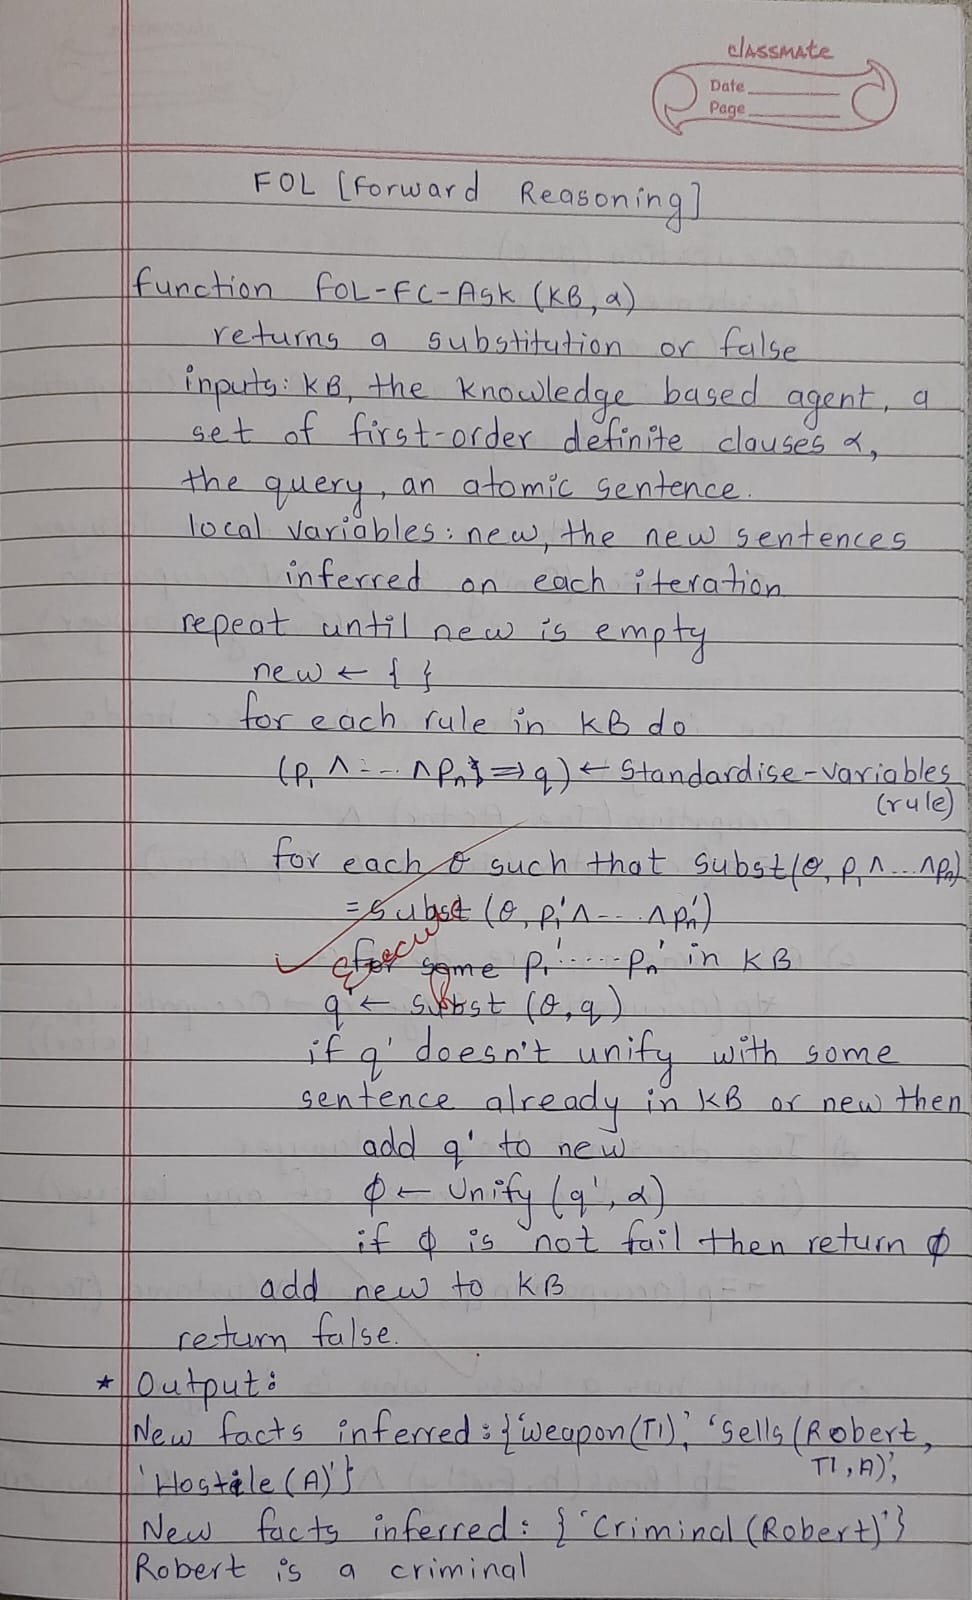 classmate
Date
Page
FOL [Forward Reasoning]
function FOL-FC-Ask (KB, α)
returns a substitution or false
inputs: KB, the knowledge based agent, a
set of first-order definite clauses α,
the query, an atomic sentence.
local variables: new, the new sentences
inferred on each iteration
repeat until new is empty
new ← { }
for each rule in KB do
(p₁ ∧ ... ∧ pₙ ⇒ q) ← Standardise-variables
(rule)
for each θ such that subst(θ, p₁ ∧ ... ∧ pₙ)
= subst (θ, p₁' ∧ ... ∧ pₙ')
for some p₁' ..... pₙ' in KB
q' ← subst (θ, q)
if q' doesn't unify with some
sentence already in KB or new then
add q' to new
ϕ ← Unify (q', α)
if ϕ is not fail then return ϕ
add new to KB
return false.
* Output:
New facts inferred: {'Weapon(T1)', 'Sells(Robert,
T1, A)',
'Hostile(A)'}
New facts inferred: {'Criminal(Robert)'}
Robert is a criminal